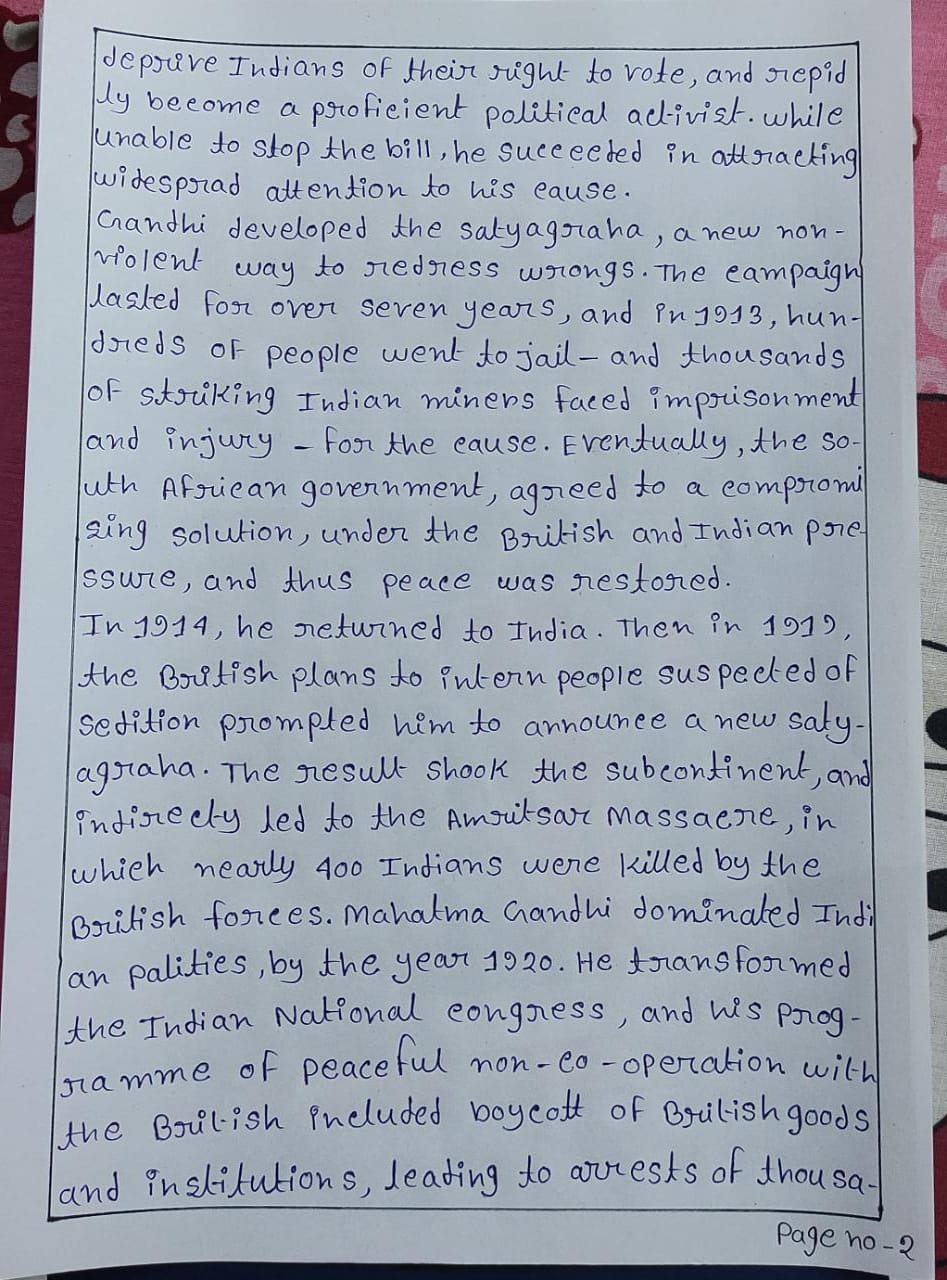 deprive Indians of their right to vote, and repid
ly become a proficient political activist. while
unable to stop the bill, he succeeded in attracting
widesprad attention to his cause.
Gandhi developed the satyagraha, a new non-
violent way to redress wrongs. The campaign
lasted for over seven years, and in 1913, hun-
dreds of people went to jail – and thousands
of striking Indian miners faced imprisonment
and injury – for the cause. Eventually, the so-
uth African government, agreed to a compromi
sing solution, under the British and Indian pre-
ssure, and thus peace was restored.
In 1914, he returned to India. Then in 1919,
the British plans to intern people suspected of
Sedition prompted him to announce a new saty-
agraha. The result shook the subcontinent, and
indirecty led to the Amritsar Massacre, in
which nearly 400 Indians were killed by the
British forces. Mahatma Gandhi dominated Indi
an palities, by the year 1920. He transformed
the Indian National congress, and his prog-
ramme of peaceful non-co-operation with
the British included boycott of British goods
and institutions, leading to arrests of thousa-
Page no - 2